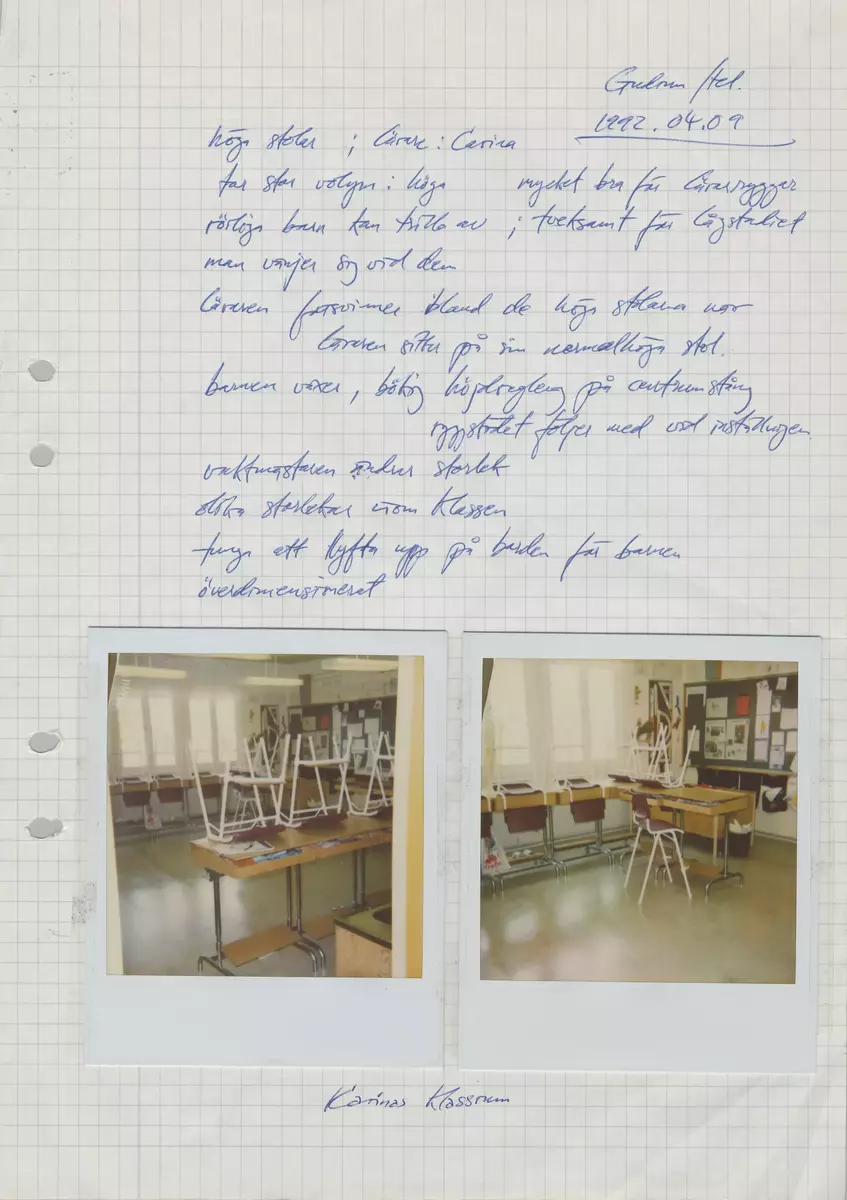 Gudrun /tel.
1992.04.09
höga stolar ; lärare: Carina
tar stor volym i höga mycket bra för lärarryggar
rörliga barn kan trilla av ; tveksamt för lågstadiet
man vänjer sig vid dem
läraren försvinner ibland de höga stolarna när
läraren sitter på sin normalhöga stol.
barnen växer, bökig höjdreglering på centrumstång
ryggstödet följer med vid inställningen.
vaktmästaren ändrar storlek
olika storlekar inom klassen
tunga att lyfta upp på borden för barnen
överdimensionerat
Karinas Klassrum